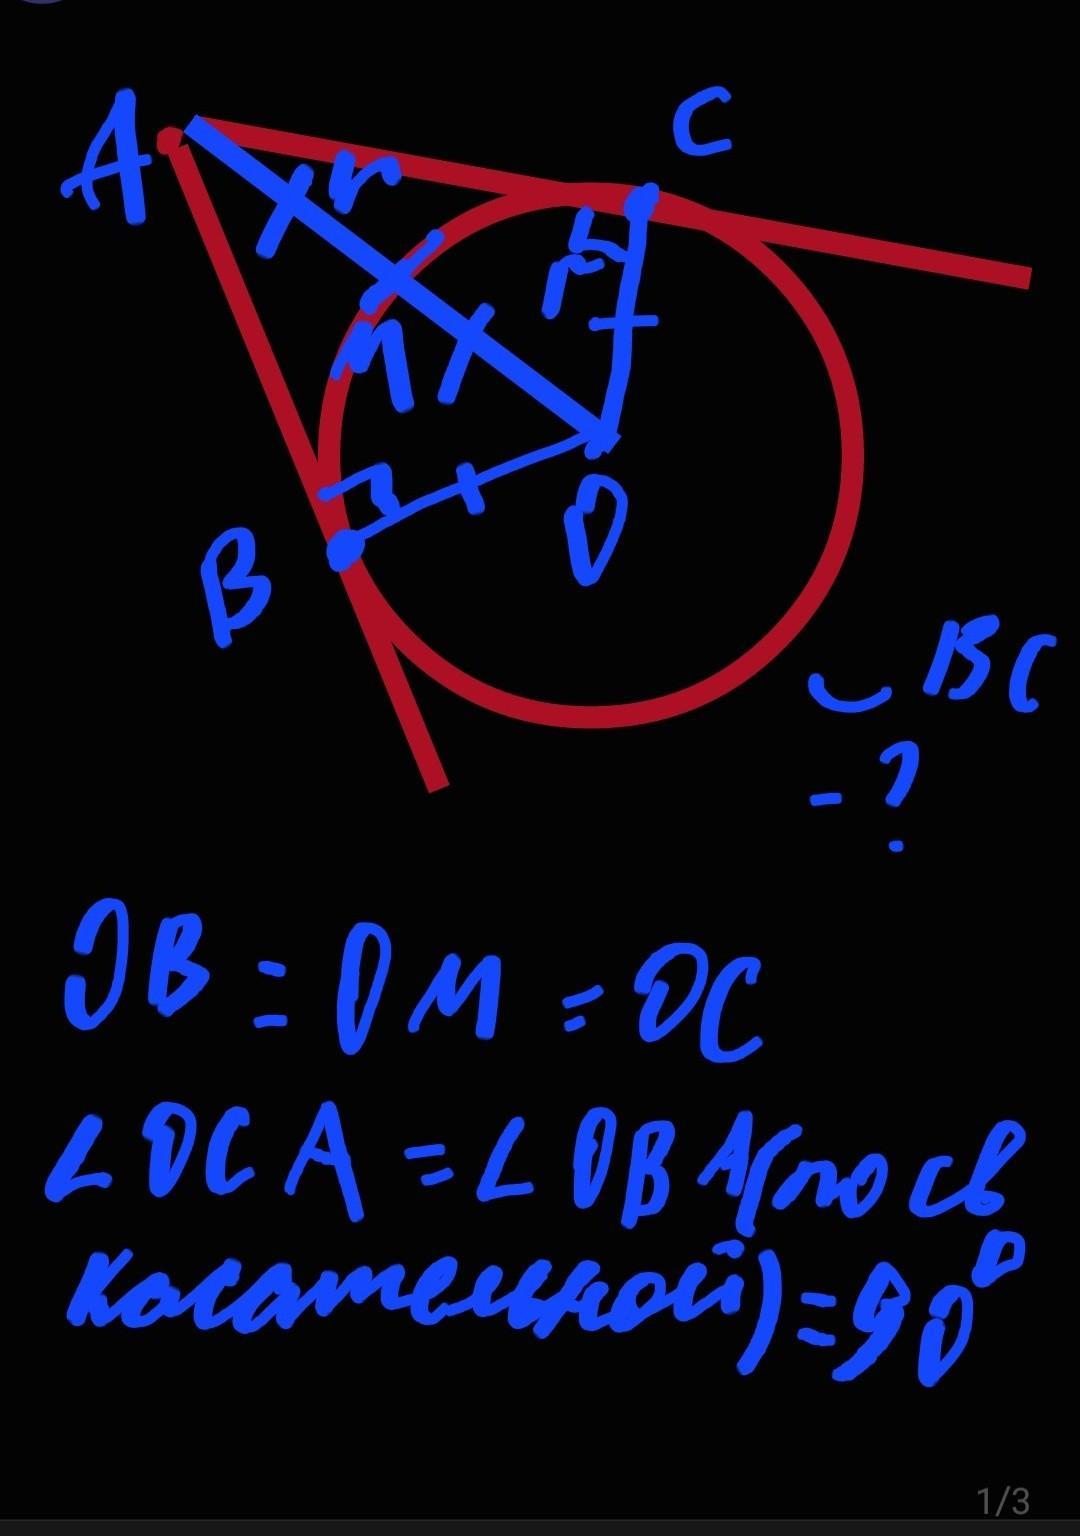 A
C
r
r
M
O
B
◡ BC
- ?
OB = OM = OC
∠ OCA = ∠ OBA (по св
касательной) = 90°
1/3